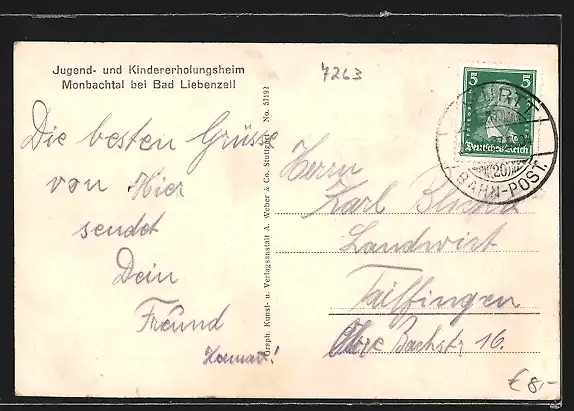 Jugend- und Kindererholungsheim
Monbachtal bei Bad Liebenzell
7263
Die besten Grüsse
von Hier
sendet
Dein
Freund
Graph. Kunst- u. Verlagsanstalt A. Weber & Co. Stuttgart No. 51192
5 5
Deutsches Reich
(20)
BAHN-POST.
Herrn
Karl
Landwirt
Tailfingen
Obre Bachstr 16.
€ 8,-